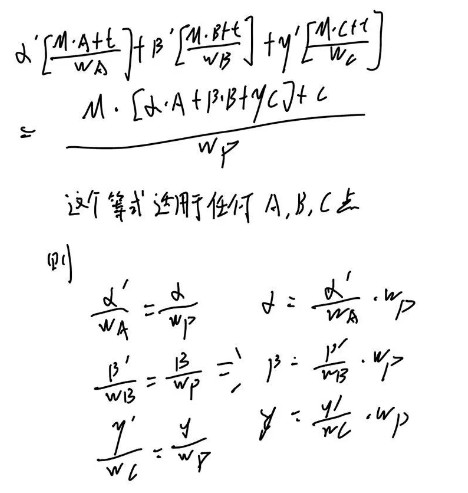 α'[M·A+t/W_A]+β'[M·B+t/W_B]+γ'[M·C+t/W_C]
= M·[α·A+β·B+γC]+t/W_P
这个等式适用于任何 A,B,C点
则
α'/W_A = α/W_P α = α'/W_A · W_P
β'/W_B = β/W_P => β = β'/W_B · W_P
γ'/W_C = γ/W_P γ = γ'/W_C · W_P